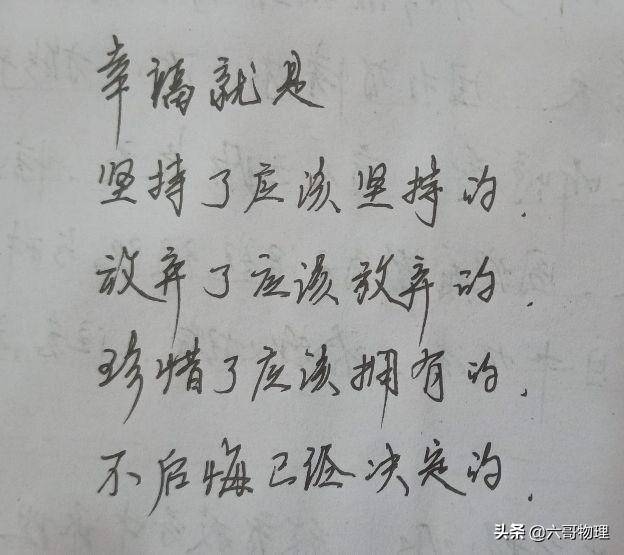 幸福就是
坚持了应该坚持的.
放弃了应该放弃的.
珍惜了应该拥有的.
不后悔已经决定的.
头条 @六哥物理